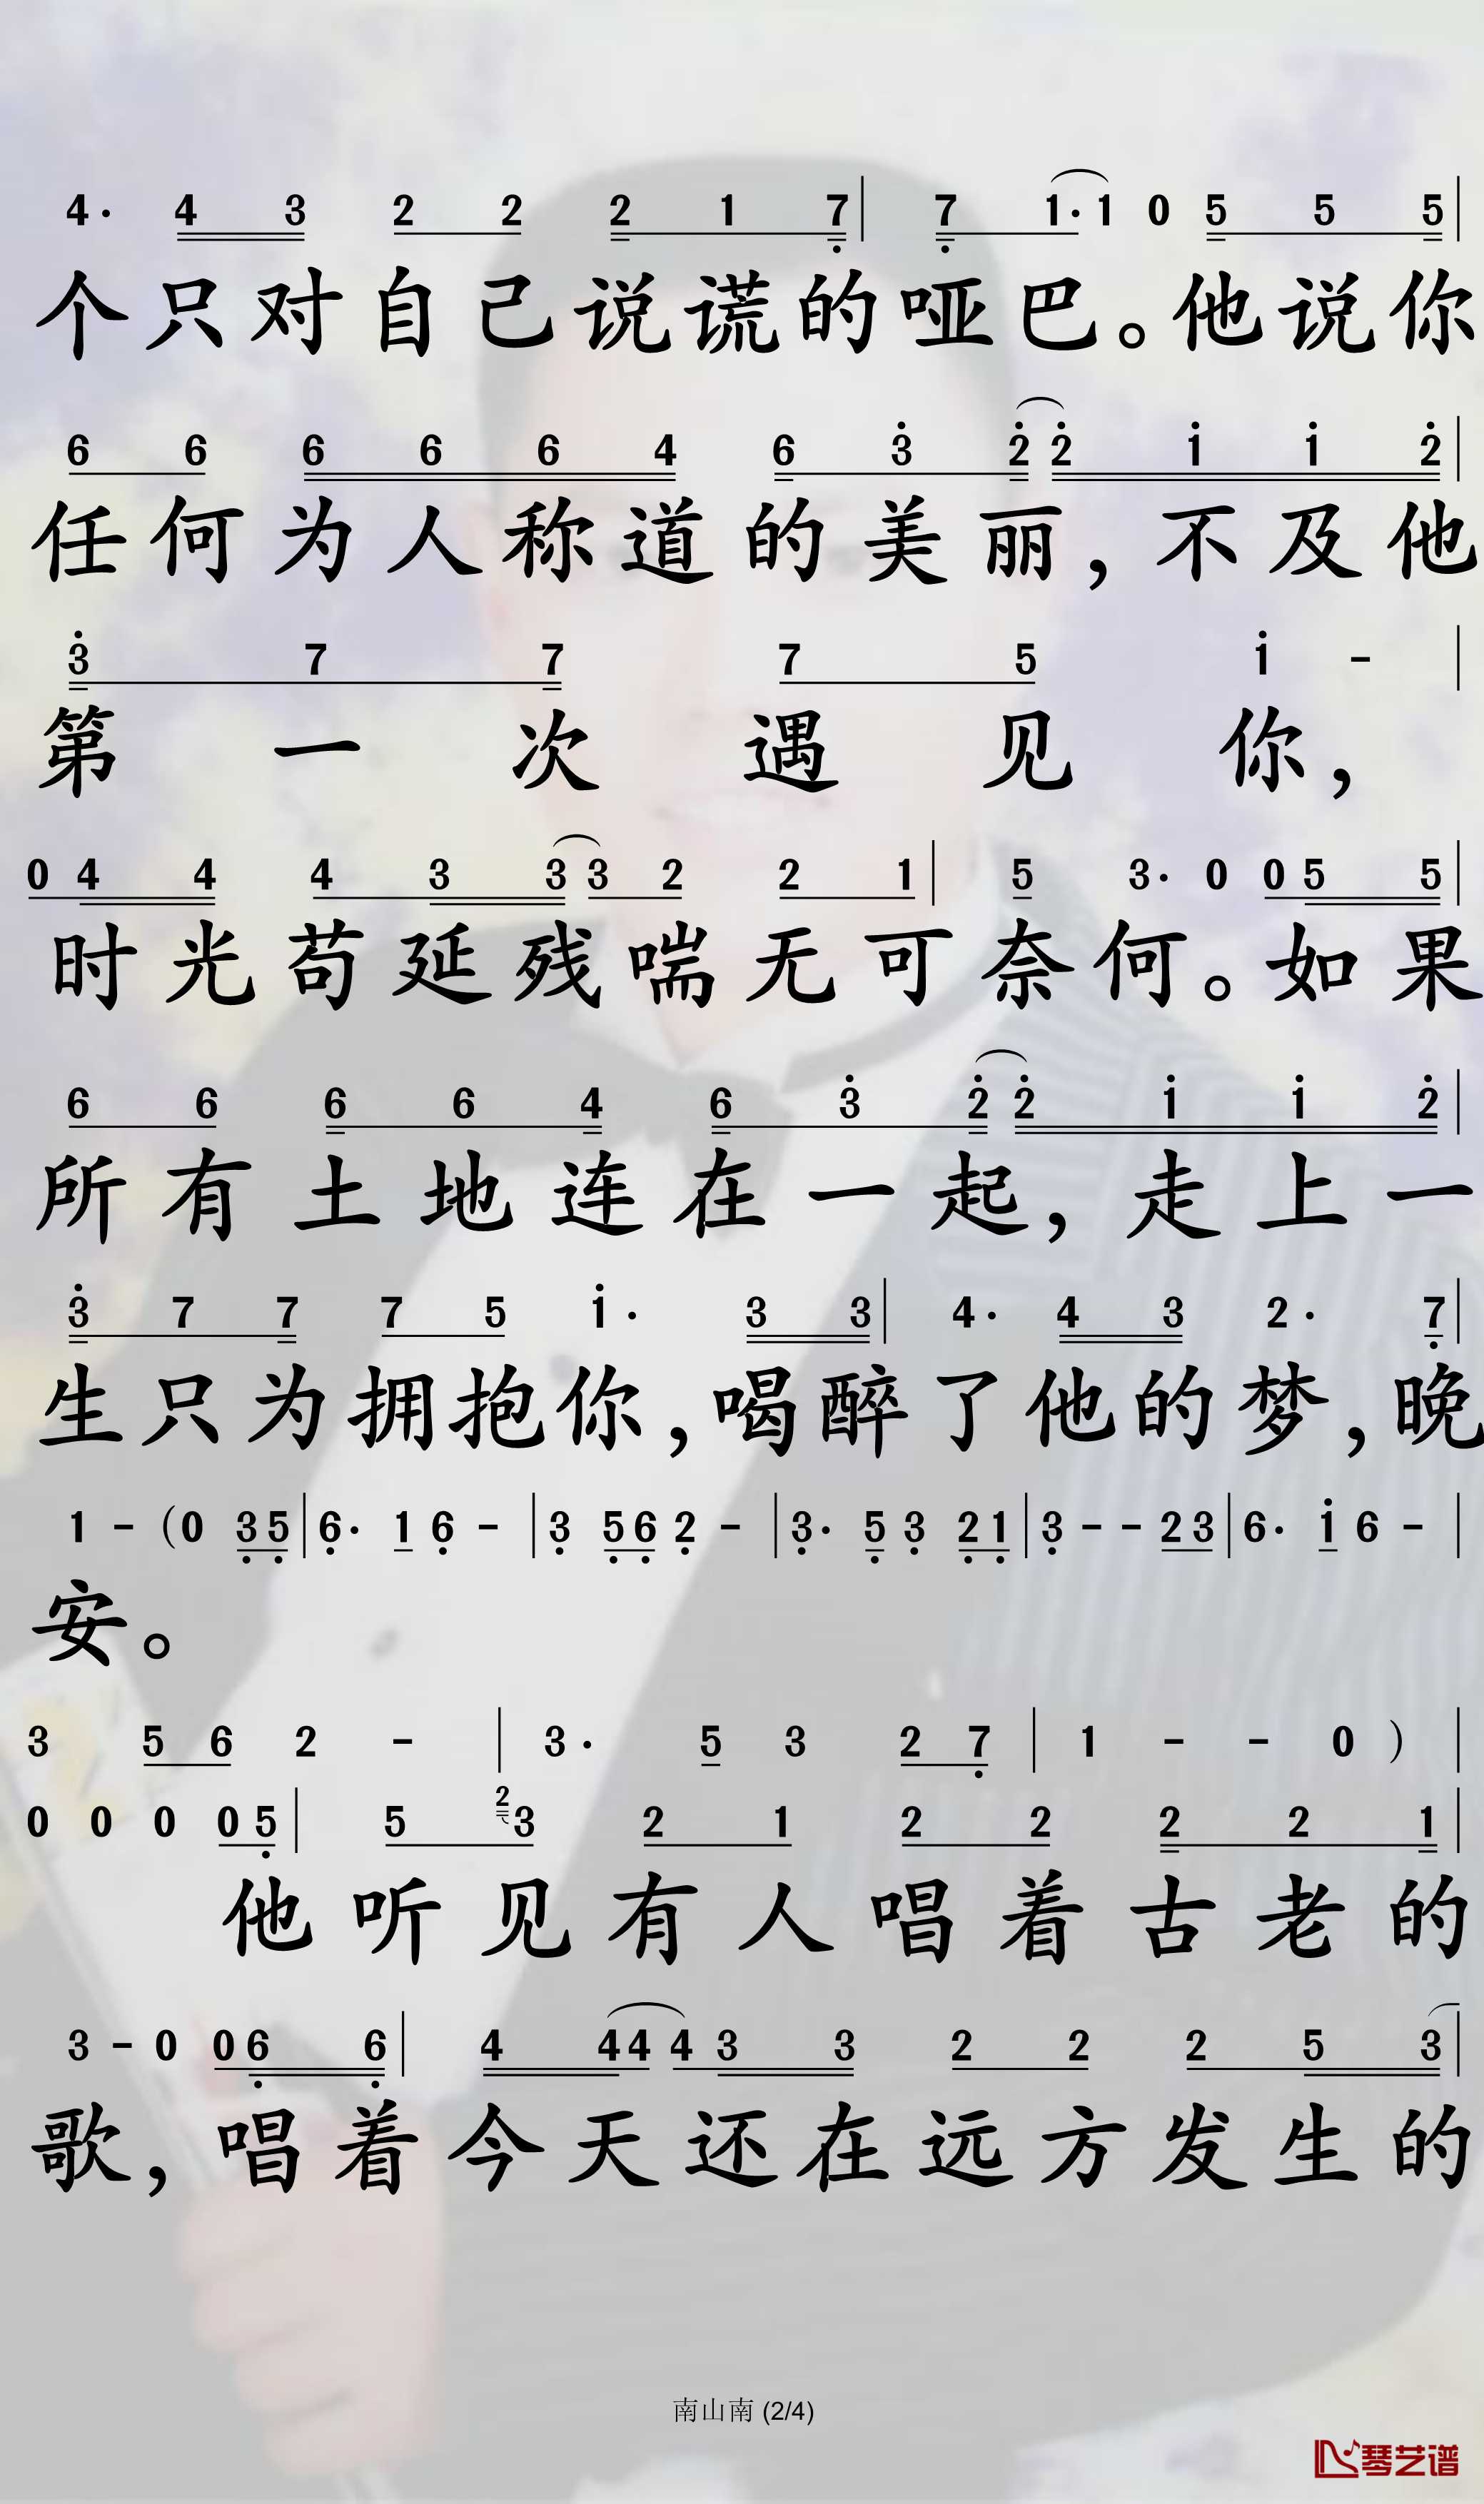 4· 4 3 2 2 2 1 7̣ | 7̣ 1·1 0 5 5 5 |
个只对自己说谎的哑巴。他说你
6 6 6 6 6 4 6 3̇ 2̇ 2̇ 1̇ 1̇ 2̇ |
任何为人称道的美丽，不及他
3̇ 7 7 7 5 1̇ - |
第一次遇见你，
0 4 4 4 3 3 3 2 2 1 | 5 3· 0 0 5 5 |
时光苟延残喘无可奈何。如果
6 6 6 6 4 6 3̇ 2̇ 2̇ 1̇ 1̇ 2̇ |
所有土地连在一起，走上一
3̇ 7 7 7 5 1̇· 3 3 | 4· 4 3 2· 7̣ |
生只为拥抱你，喝醉了他的梦，晚
1 - (0 3̣ 5̣ | 6̣· 1 6̣ - | 3̣ 5̣ 6̣ 2̣ - | 3̣· 5̣ 3̣ 2̣ 1̣ | 3̣ - - 2 3 | 6· 1̇ 6 - |
安。
3 5 6 2 - | 3· 5 3 2 7̣ | 1 - - 0 )
0 0 0 0 5̣ | 5 2 3 2 1 2 2 2 2 1 |
他听见有人唱着古老的
3 - 0 0 6̣ 6̣ | 4 4 4 4 3 3 2 2 2 5 3 |
歌，唱着今天还在远方发生的
南山南 (2/4)
琴艺谱